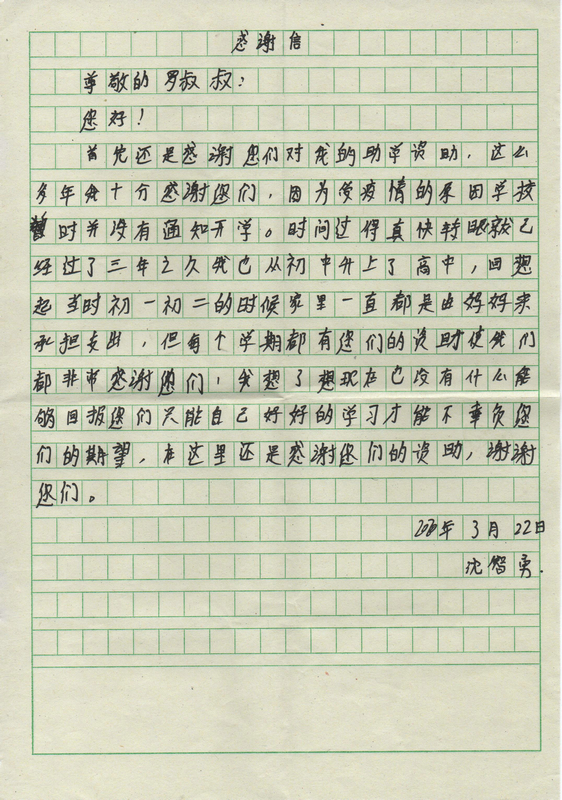 感谢信
尊敬的罗叔叔：
您好！
首先还是感谢您们对我的助学资助，这么
多年我十分感谢您们，因为受疫情的原因学校
暂时并没有通知开学。时间过得真快转眼就已
经过了三年之久我也从初中升上了高中，回想
起当时初一初二的时候家里一直都是由妈妈来
承担支出，但每个学期都有您们的资助使我们
都非常感谢您们，我想了想现在也没有什么能
够回报您们只能自己好好的学习才能不辜负您
们的期望，在这里还是感谢您们的资助，谢谢
您们。
2020年3月22日
沈智勇.